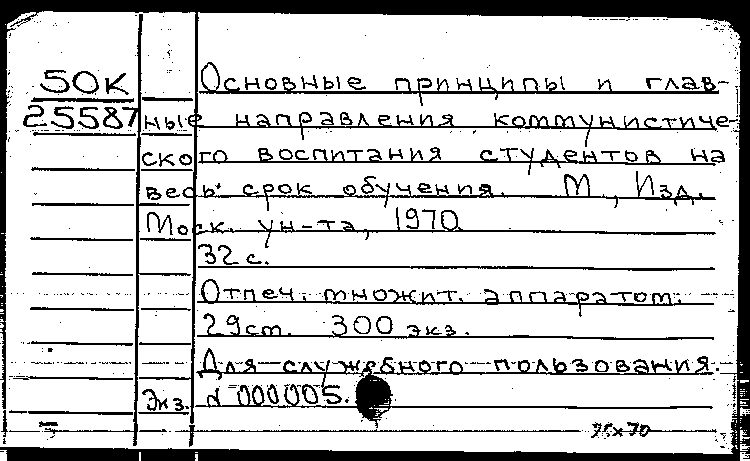 50К
25587
Основные принципы и глав-
ные направления коммунистиче-
ского воспитания студентов на
весь срок обучения. М, Изд.
Моск. ун-та, 1970
32 с.
Отпеч. множит. аппаратом.
29см. 300 экз.
Для служебного пользования.
Экз. № 000005.